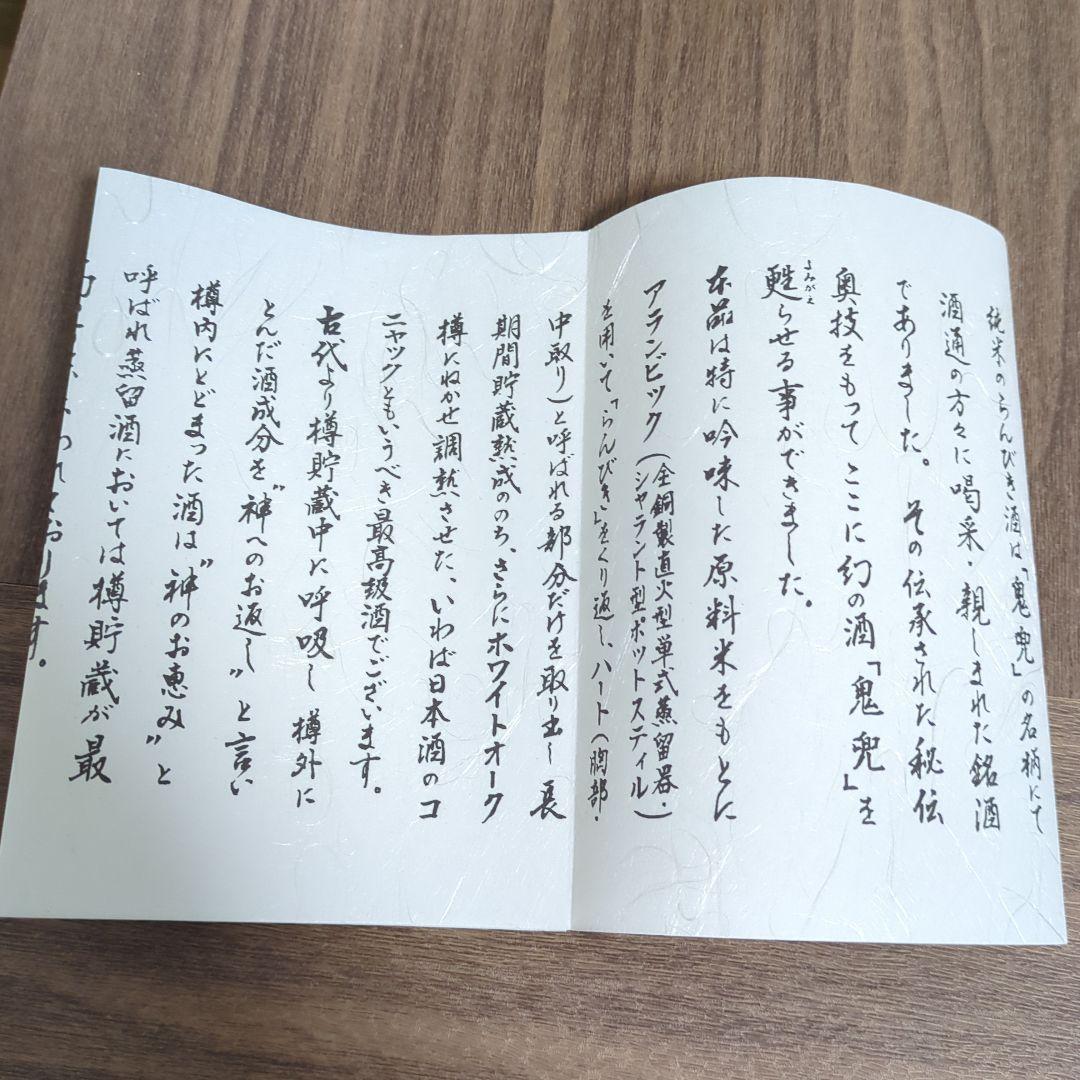 純米のらんびき酒は「鬼兜」の名柄にて
酒通の方々に喝采・親しまれた銘酒
でありました。その伝承された秘伝
奥技をもってここに幻の酒「鬼兜」を
甦らせる事ができました。
よみがえ
本品は特に吟味した原料米をもとに
アランビック(全銅製直火型単式蒸留器・
シャラント型ポットスティル)
を用いて「らんびき」をくり返し、ハート(胸部・
中取り)と呼ばれる部分だけを取り出し長
期間貯蔵熟成ののち、さらにホワイトオーク
樽にねかせ調熟させた、いわば日本酒のコ
ニャックともいうべき最高級酒でございます。
古代より樽貯蔵中に呼吸し樽外に
とんだ酒成分を〝神へのお返し〟と言い
樽内にとどまった酒は〝神のお恵み〟と
呼ばれ蒸留酒においては樽貯蔵が最
われております。